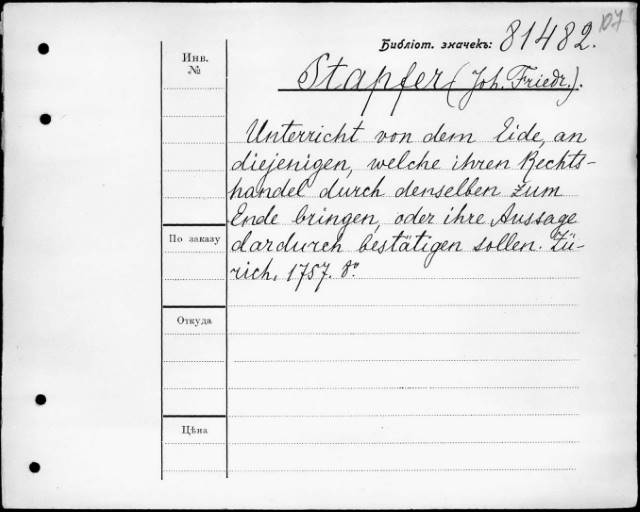 107
Библіот. значекъ: 81482.
Инв.
№
Stapfer (Joh. Friedr.).
Unterricht von dem Eide, an
diejenigen, welche ihren Rechts-
handel durch denselben zum
Ende bringen, oder ihre Aussage
По заказу
dardurch bestätigen sollen. Zü-
rich, 1757. 8º.
Откуда
Цѣна